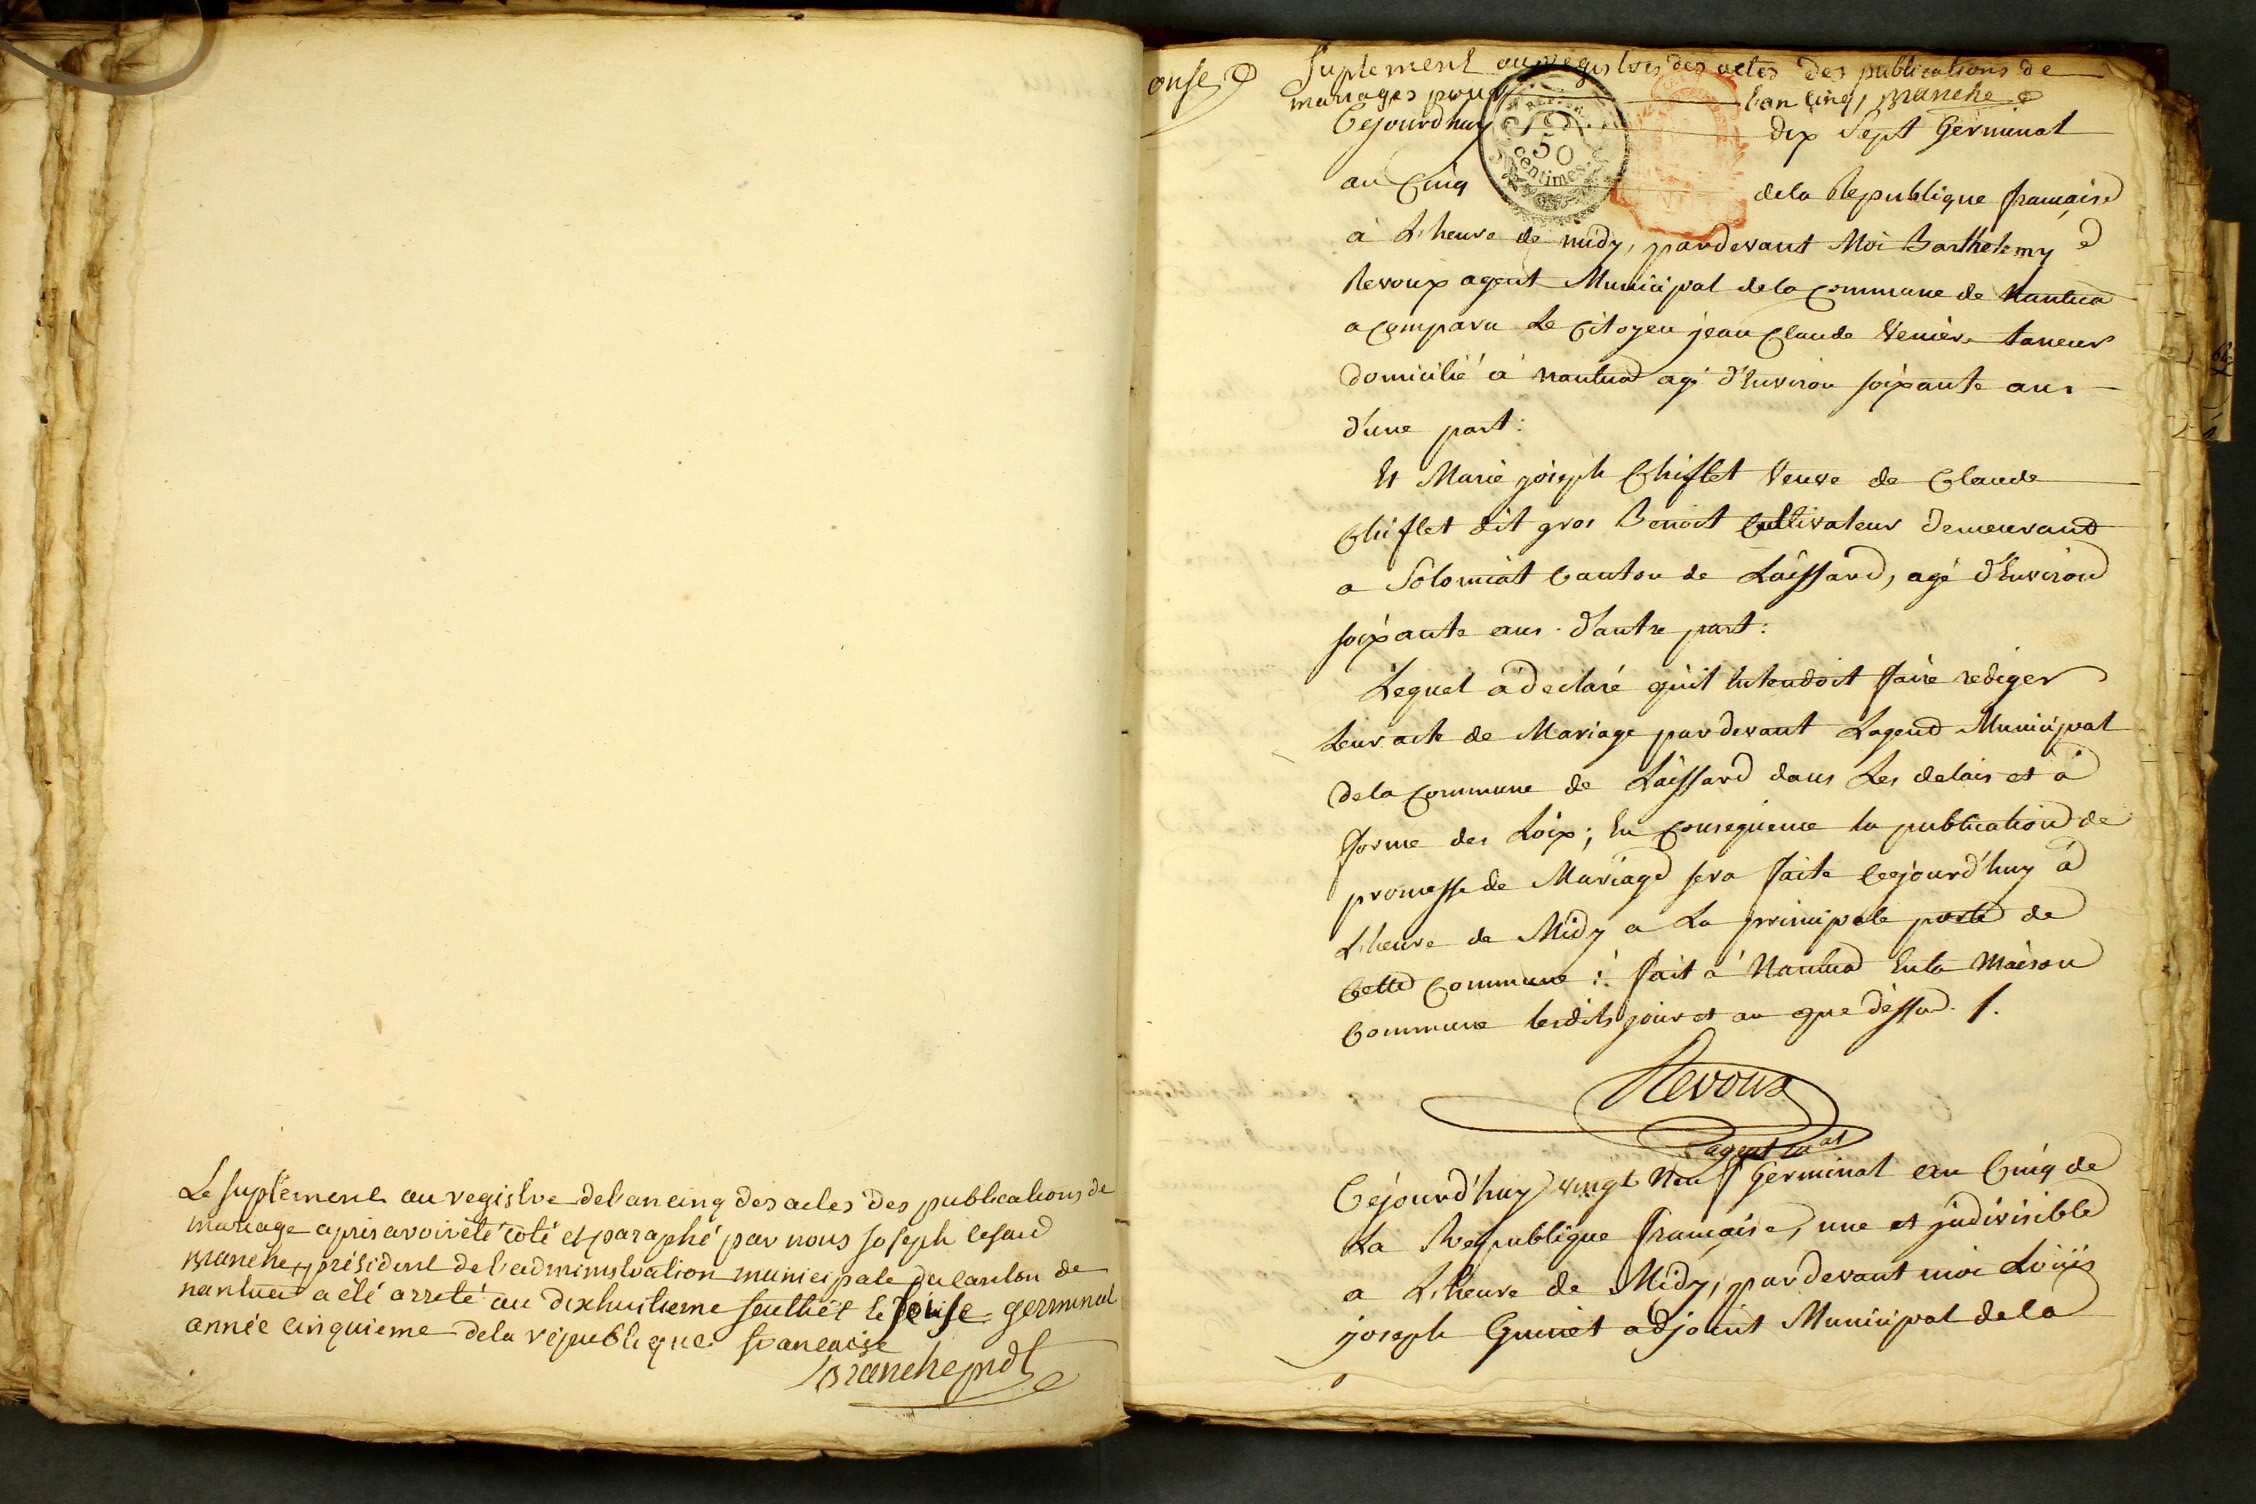 Le suplement au registre de l'an cinq des actes des publications de
mariage apris avoir été coté et paraphé par nous Joseph
Branche, président de l'administration municipale du canton de
nantua a été arreté au dixhuitieme feuillet le seise germinal
année cinquieme de la république francaise
Branche pndt
onse
Suplement au registres des actes des publications de
mariages pour l'an cinq, Branche
Cejourdhuy dix Sept Germinal
an Cinq de la Republique française
à L'heure de midy, pardevant Moi Barthelemy
Revoux agent Municipal de la Commune de Nantua
a Comparu Le Citoyen jean Claude Venière taneur
domicilié à nantua agé d'Environ soixante ans
d'une part :
Et Marie joseph Chiflet Veuve de Claude
Chiflet dit gros Benoit Cultivateur demeurant
a Solomiat Canton de Laissard, agé d'Environ
soixante ans d'autre part :
Lequel a declaré qu'il Entendoit faire rediger
Leur acte de Mariage pardevant Lagent Municipal
de la Commune de Laissard dans Les delais et à
forme des Loix ; En Consequence la publication de
promesse de Mariage sera faite Cejourd'huy à
L'heure de Midy a La principale porte de
Cette Commune : fait à Nantua En la Maison
Commune lesdits jour et an que dessus
Revoux
agent mal
Cejourd'huy vingt Neuf Germinal an Cinq de
La Republique française, une et indivisible
a L'heure de Midy, pardevant moi Loüis
joseph Guinet adjoint Municipal de la
REP. FRA.
50
centimes